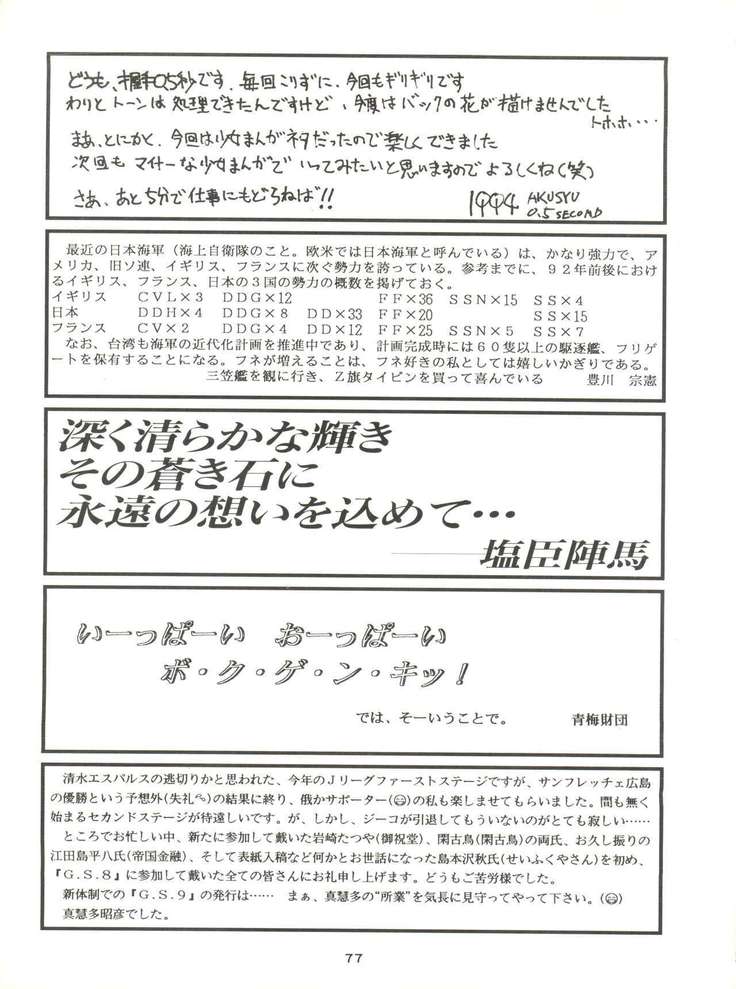 どうも、握手0.5秒です。毎回こりずに、今回もギリギリです
わりとトーンは処理できたんですけど、今度はバックの花が描けませんでした
トホホ・・・
まあ、とにかく、今回は少女まんがネタだったので楽しくできました
次回も マイナーな少女まんがで いってみたいと思いますので よろしくね(笑)
さあ、あと5分で仕事にもどらねば!!
1994 AKUSYU
0.5 SECOND
最近の日本海軍(海上自衛隊のこと。欧米では日本海軍と呼んでいる)は、かなり強力で、ア
メリカ、旧ソ連、イギリス、フランスに次ぐ勢力を誇っている。参考までに、92年前後におけ
るイギリス、フランス、日本の3国の勢力の概数を掲げておく。
イギリス CVL×3 DDG×12 FF×36 SSN×15 SS×4
日本 DDH×4 DDG×8 DD×33 FF×20 SS×15
フランス CV×2 DDG×4 DD×12 FF×25 SSN×5 SS×7
なお、台湾も海軍の近代化計画を推進中であり、計画完成時には60隻以上の駆逐艦、フリゲ
ートを保有することになる。フネが増えることは、フネ好きの私としては嬉しいかぎりである。
三笠艦を観に行き、Z旗タイピンを買って喜んでいる 豊川 宗憲
深く清らかな輝き
その蒼き石に
永遠の想いを込めて…
――塩臣陣馬
いーっぱーい おーっぱーい
ボ・ク・ゲ・ン・キッ!
では、そーいうことで。 青梅財団
清水エスパルスの逃切りかと思われた、今年のJリーグファーストステージですが、サンフレッチェ広島
の優勝という予想外(失礼)の結果に終り、俄かサポーター()の私も楽しませてもらいました。間も無く
始まるセカンドステージが待遠しいです。が、しかし、ジーコが引退してもういないのがとても寂しい……
ところでお忙しい中、新たに参加して戴いた岩崎たつや(御祝堂)、閑古鳥(閑古鳥)の両氏、お久し振りの
江田島平八氏(帝国金融)、そして表紙入稿など何かとお世話になった島本沢秋氏(せいふくやさん)を初め、
『G.S.8』に参加して戴いた全ての皆さんにお礼申し上げます。どうもご苦労様でした。
新体制での『G.S.9』の発行は…… まぁ、真慧多の“所業”を気長に見守ってやって下さい。()
真慧多昭彦でした。
77